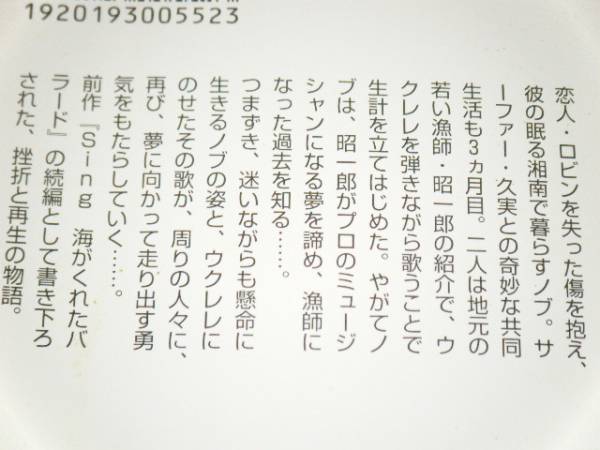 1920193005523
恋人・ロビンを失った傷を抱え、
彼の眠る湘南で暮らすノブ。サ
ーファー・久実との奇妙な共同
生活も3ヵ月目。二人は地元の
若い漁師・昭一郎の紹介で、ウ
クレレを弾きながら歌うことで
生計を立てはじめた。やがてノ
ブは、昭一郎がプロのミュージ
シャンになる夢を諦め、漁師に
なった過去を知る……。
つまずき、迷いながらも懸命に
生きるノブの姿と、ウクレレに
のせたその歌が、周りの人々に、
再び、夢に向かって走り出す勇
気をもたらしていく……。
前作『Sing 海がくれたバ
ラード』の続編として書き下ろ
された、挫折と再生の物語。